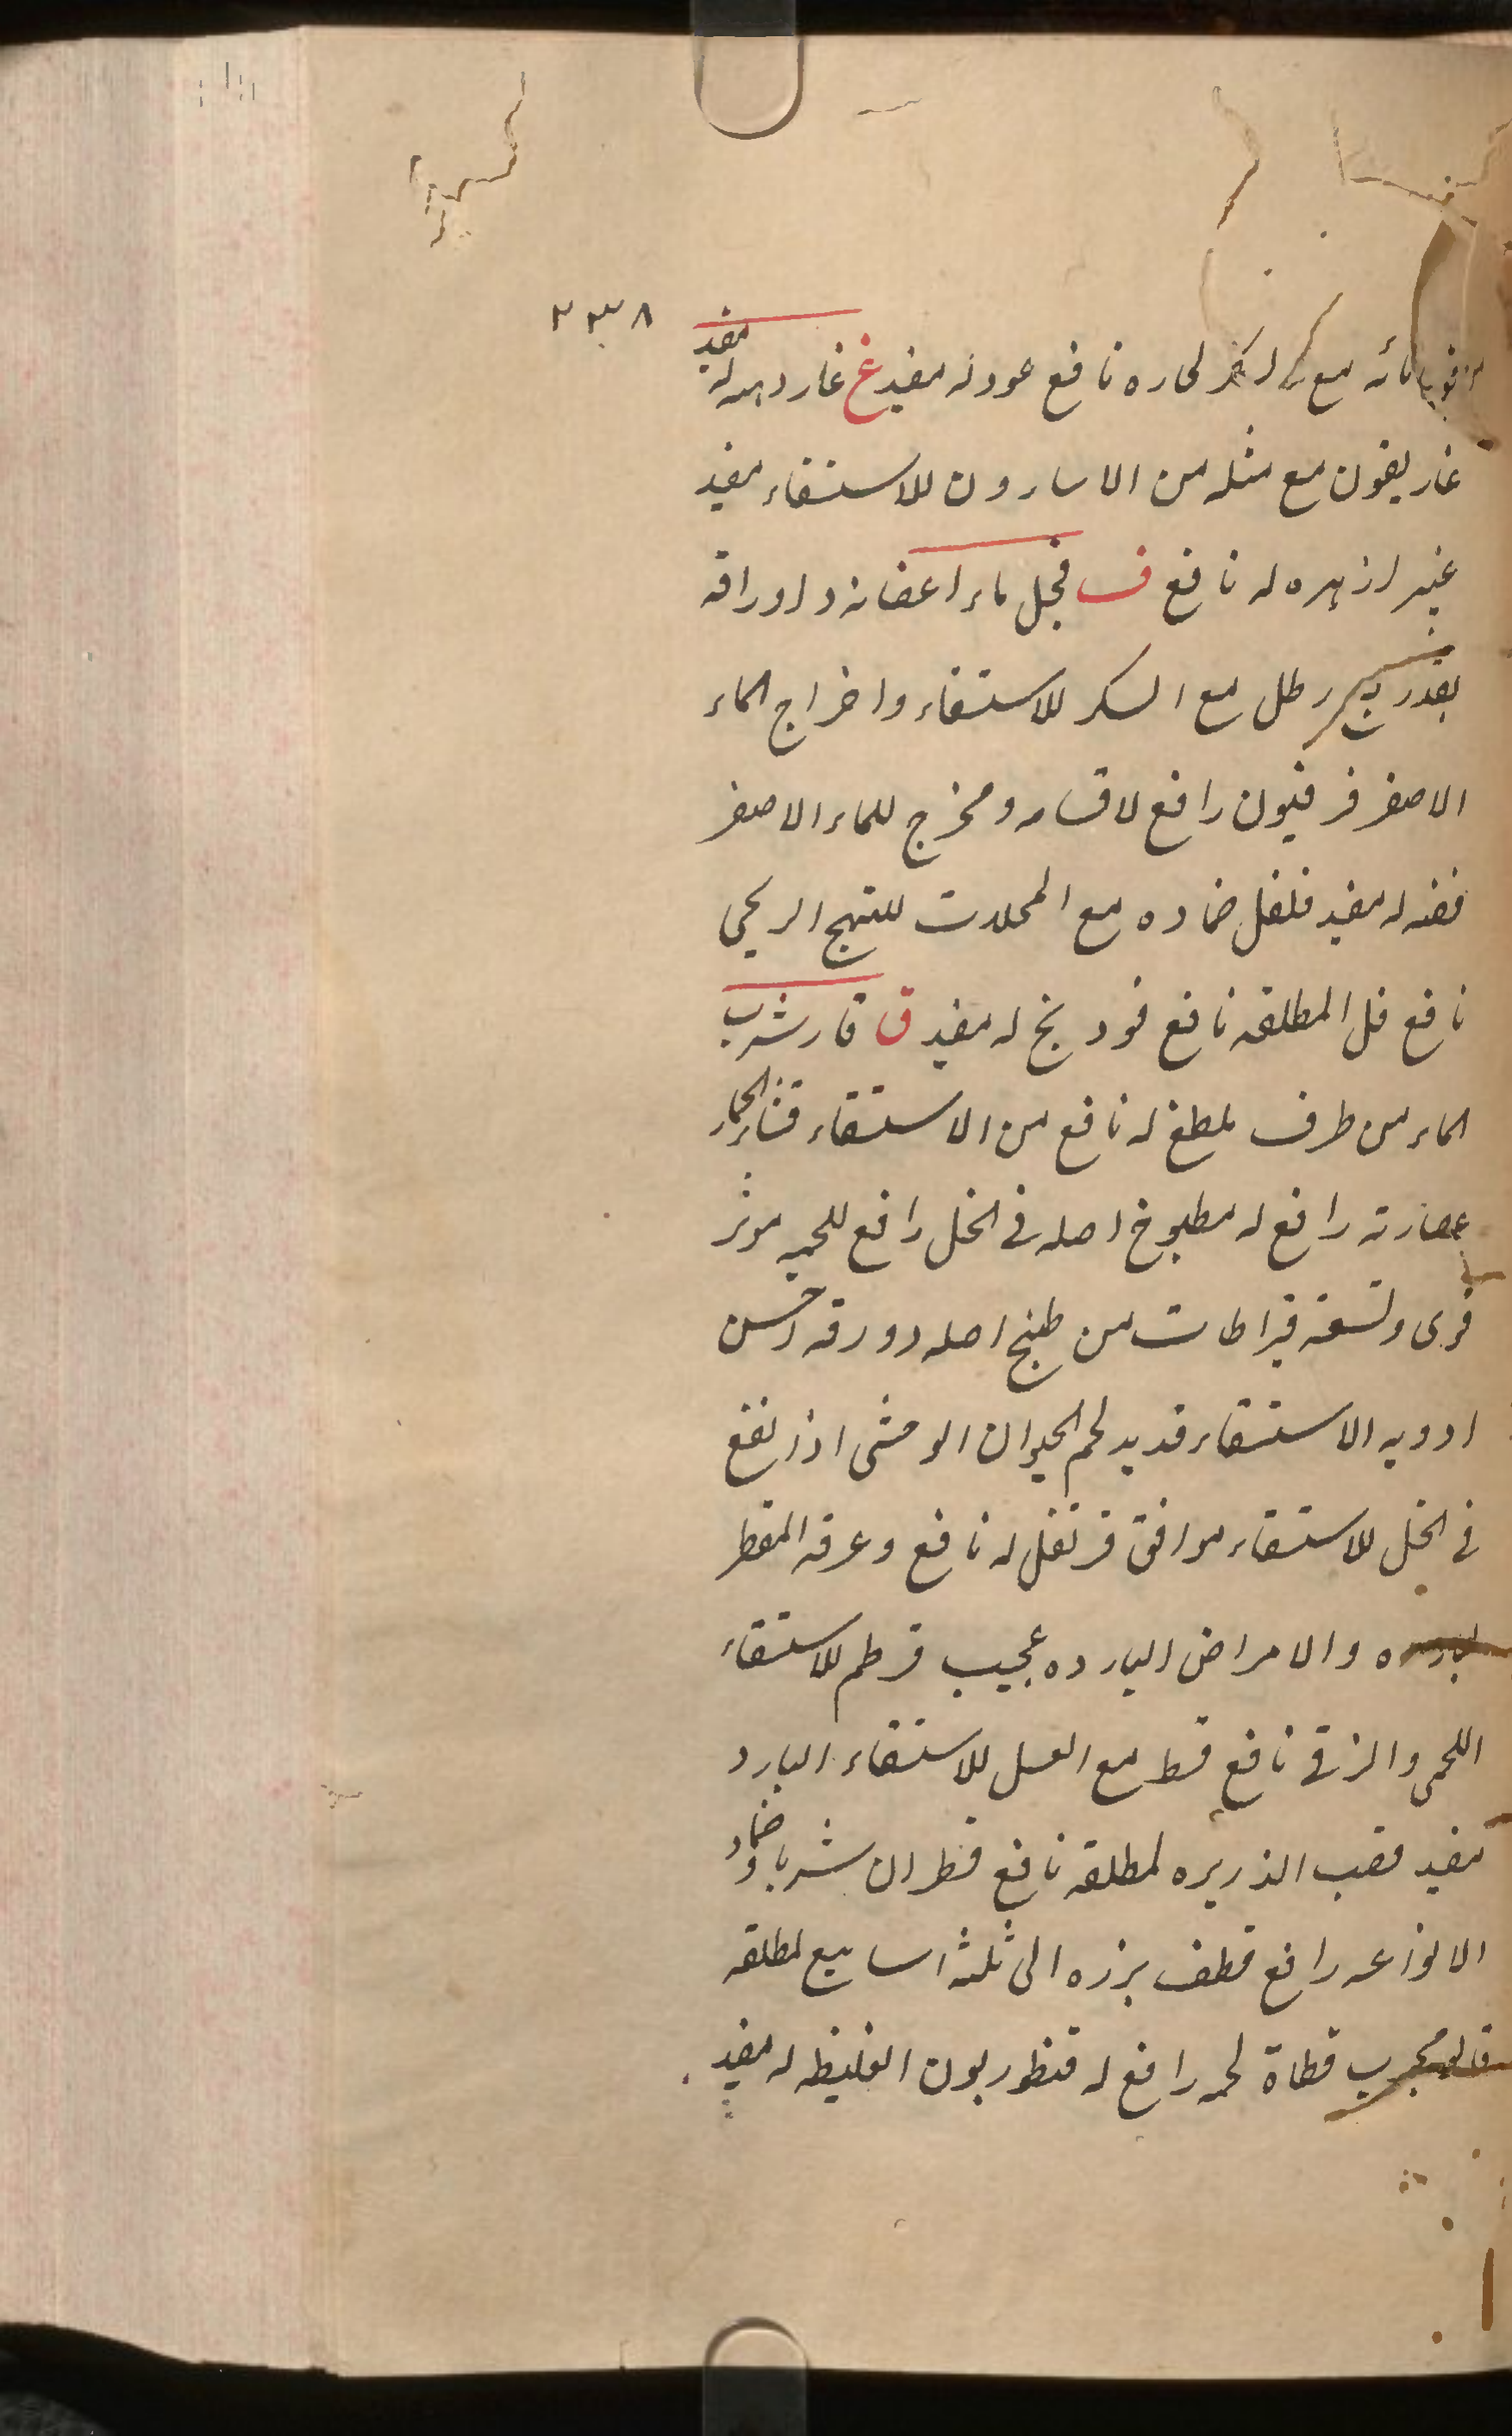 ٢٣٨
مائه مع السكر لحاره نافع عود له مفيد غ غار دهنه له مفيد
غاريقون مع مثله من الاسارون للاستسقاء مفيد
غبيرا زهره له نافع ف فجل ماء اغصانه و اوراقه
بقدر رطل مع السكر للاستسقاء واخراج الماء
الاصفر فرفيون رافع لاقسامه ومخرج للماء الاصفر
فضه له مفيد فلفل ضماده مع المحللات للتهيج الريحى
نافع فل المطلقه نافع فودنج له مفيد ق قار شرب
الماء من طرف يلطخ له نافع من الاستسقاء قثاء الحمار
عصارته رافع له مطبوخ اصله فى الخل رافع للحميه موثر
قوى وتسعة قيراطات من طبخ اصله و ورقه احسن
ادويه الاستسقاء قديد لحم الحيوان الوحشى اذا نقع
فى الخل للاستسقاء موافق قرنفل له نافع وعرقه المقطر
والامراض البارده عجيب قرطم للاستسقاء
اللحمى والزقى نافع قسط مع العسل للاستسقاء البارد
مفيد قصب الذريره لمطلقه نافع قطران شربا وضماد
الانواعه رافع قطف بزره الى ثلثة اسابيع لمطلقه
مجرب قطاة لحمه رافع له قنطوريون الغليظ له مفيد